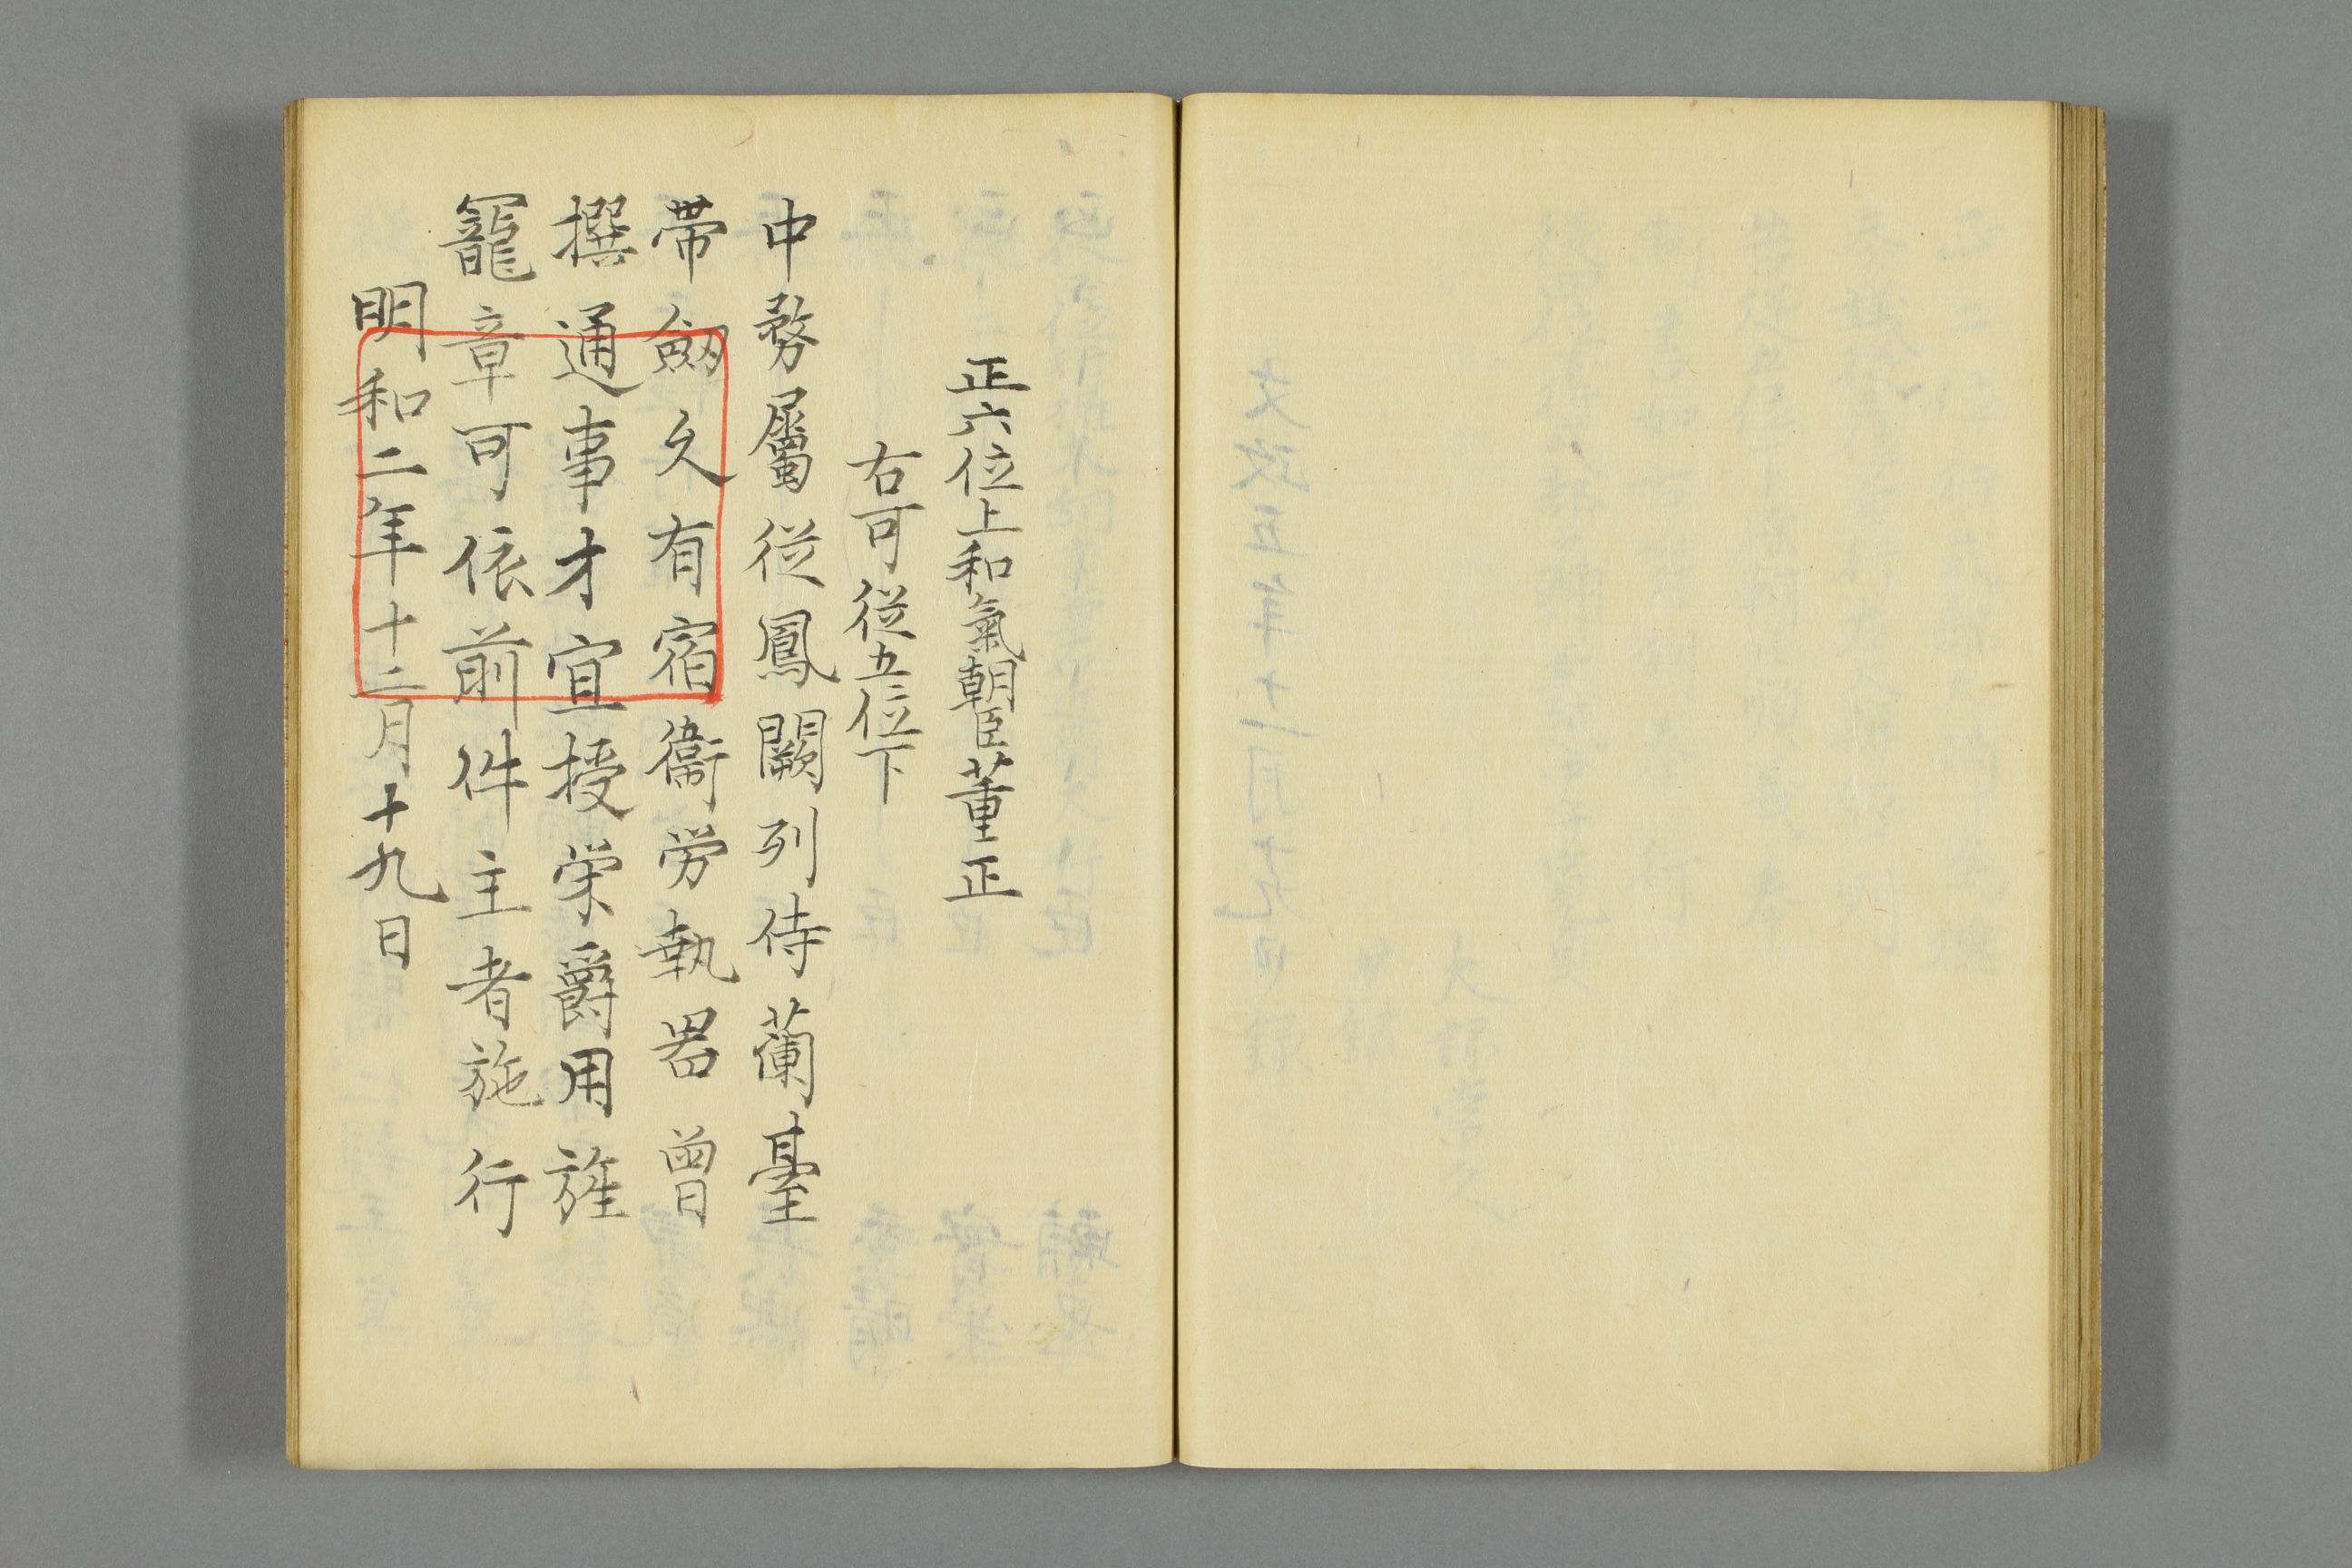 正六位上和氣朝臣董正
右可從五位下
中務屬従鳳闕列侍蘭臺
帯劔久有宿衞労執器曽
撰通事才宜授栄爵用旌
寵章可依前件主者施行
明和二年十二月十九日